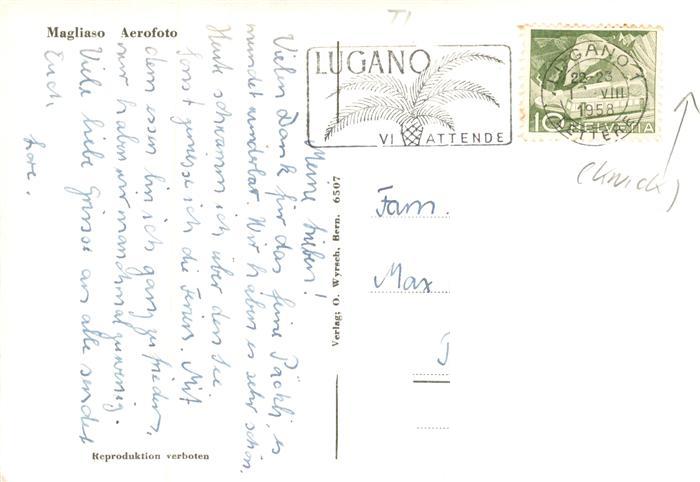 Magliaso Aerofoto
Meine Lieben!
Vielen Dank für das feine Päckli, es
mundet wunderbar. Wir haben es sehr schön.
Heute schwamm ich über den See
sonst geniesse ich die Ferien. Mit
dem essen bin ich ganz zufrieden,
nur haben wir manchmal zu wenig.
Viele liebe Grüsse an alle sendet
Euch
Lore.
Reproduktion verboten
Verlag; O. Wyrsch, Bern. 6507
TI
LUGANO
VI ATTENDE
LUGANO 1
22-23
VIII
1958
LETTERE
10 HELVETIA
(Knick)
Fam.
Max